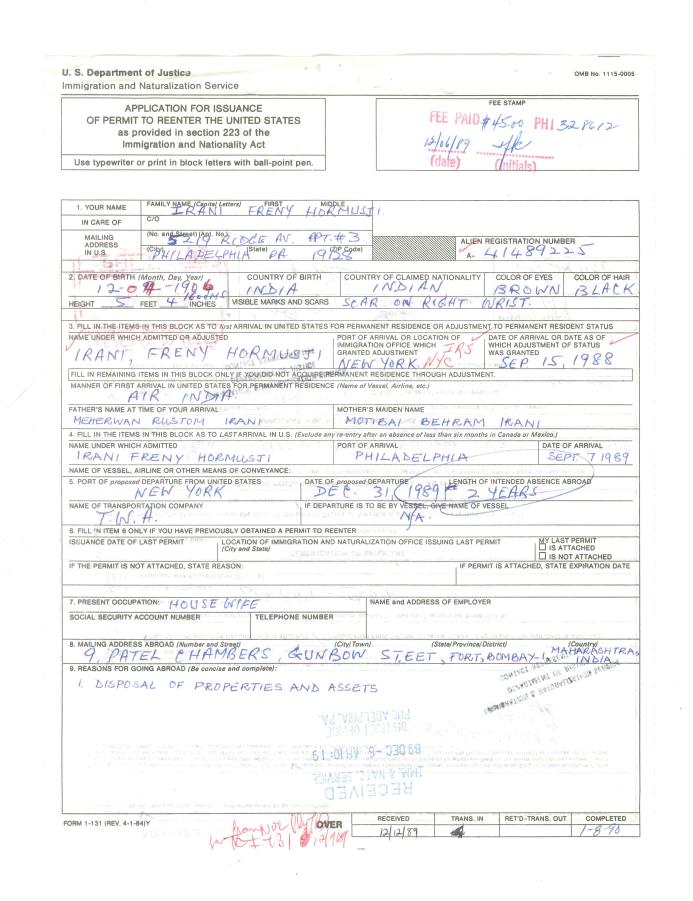 U. S. Department of Justice
Immigration and Naturalization Service
OMB No. 1115-0005
APPLICATION FOR ISSUANCE
OF PERMIT TO REENTER THE UNITED STATES
as provided in section 223 of the
Immigration and Nationality Act
Use typewriter or print in block letters with ball-point pen.
FEE STAMP
FEE PAID $45.00 PHI 328612
12/06/89
(date) (initials)
1. YOUR NAME FAMILY NAME (Capital Letters) FIRST MIDDLE
IRANI FRENY HORMUSJI
IN CARE OF C/O
MAILING ADDRESS IN U.S. (No. and Street) (Apt. No.)
5219 RIDGE AV. APT. #3
(City) (State) (ZIP Code)
PHILADELPHIA PA 19128
ALIEN REGISTRATION NUMBER
A- 41489225
2. DATE OF BIRTH (Month, Day, Year) COUNTRY OF BIRTH COUNTRY OF CLAIMED NATIONALITY COLOR OF EYES COLOR OF HAIR
INDIA INDIAN BROWN BLACK
HEIGHT 5 FEET 4 INCHES VISIBLE MARKS AND SCARS SCAR ON RIGHT WRIST.
3. FILL IN THE ITEMS IN THIS BLOCK AS TO first ARRIVAL IN UNITED STATES FOR PERMANENT RESIDENCE OR ADJUSTMENT TO PERMANENT RESIDENT STATUS
NAME UNDER WHICH ADMITTED OR ADJUSTED
IRANI, FRENY HORMUSJI
PORT OF ARRIVAL OR LOCATION OF IMMIGRATION OFFICE WHICH GRANTED ADJUSTMENT
NEW YORK. NYC
DATE OF ARRIVAL OR DATE AS OF WHICH ADJUSTMENT OF STATUS WAS GRANTED
SEP 15, 1988
FILL IN REMAINING ITEMS IN THIS BLOCK ONLY IF YOU DID NOT ACQUIRE PERMANENT RESIDENCE THROUGH ADJUSTMENT.
MANNER OF FIRST ARRIVAL IN UNITED STATES FOR PERMANENT RESIDENCE (Name of Vessel, Airline, etc.)
AIR INDIA
FATHER'S NAME AT TIME OF YOUR ARRIVAL MOTHER'S MAIDEN NAME
MEHERWAN RUSTOM IRANI MOTIBAI BEHRAM IRANI
4. FILL IN THE ITEMS IN THIS BLOCK AS TO LAST ARRIVAL IN U.S. (Exclude any re-entry after an absence of less than six months in Canada or Mexico.)
NAME UNDER WHICH ADMITTED PORT OF ARRIVAL DATE OF ARRIVAL
IRANI FRENY HORMUSJI PHILADELPHIA SEPT 7 1989
NAME OF VESSEL, AIRLINE OR OTHER MEANS OF CONVEYANCE:
5. PORT OF proposed DEPARTURE FROM UNITED STATES DATE OF proposed DEPARTURE LENGTH OF INTENDED ABSENCE ABROAD
NEW YORK DEC. 31, 1989 2 YEARS
NAME OF TRANSPORTATION COMPANY IF DEPARTURE IS TO BE BY VESSEL, GIVE NAME OF VESSEL
T.W.A. N/A.
6. FILL IN ITEM 6 ONLY IF YOU HAVE PREVIOUSLY OBTAINED A PERMIT TO REENTER
ISSUANCE DATE OF LAST PERMIT LOCATION OF IMMIGRATION AND NATURALIZATION OFFICE ISSUING LAST PERMIT
(City and State)
MY LAST PERMIT
☐ IS ATTACHED
☐ IS NOT ATTACHED
IF THE PERMIT IS NOT ATTACHED, STATE REASON: IF PERMIT IS ATTACHED, STATE EXPIRATION DATE
7. PRESENT OCCUPATION: HOUSE WIFE NAME and ADDRESS OF EMPLOYER
SOCIAL SECURITY ACCOUNT NUMBER TELEPHONE NUMBER
8. MAILING ADDRESS ABROAD (Number and Street) (City/Town) (State/Province/District) (Country)
9, PATEL CHAMBERS, GUNBOW STEET, FORT, BOMBAY-1, MAHARASHTRA, INDIA.
9. REASONS FOR GOING ABROAD (Be concise and complete):
1. DISPOSAL OF PROPERTIES AND ASSETS
PHILADELPHIA, PA.
DISTRICT OFFICE
89 DEC -6 AM 10:19
IMM. & NATZ. SERVICE
RECEIVED
FORM I-131 (REV. 4-1-84)Y
OVER
RECEIVED TRANS. IN RET'D-TRANS. OUT COMPLETED
12/12/89 1-8-90